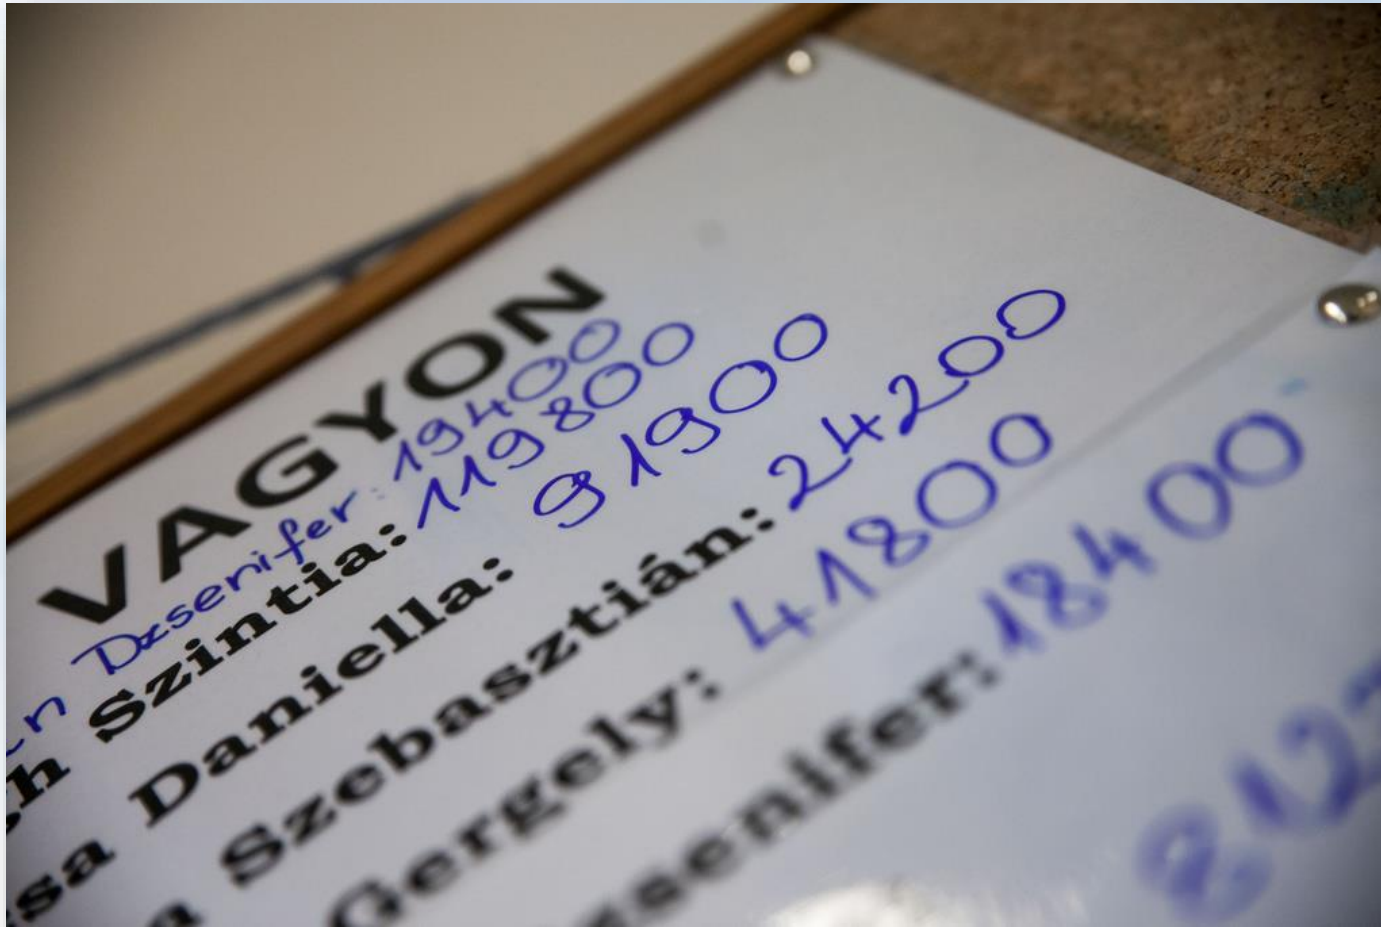 VAGYON
Dzsenifer: 19400
Szintia: 119800
Daniella: 91900
Szebasztián: 24200
Gergely: 41800
18400